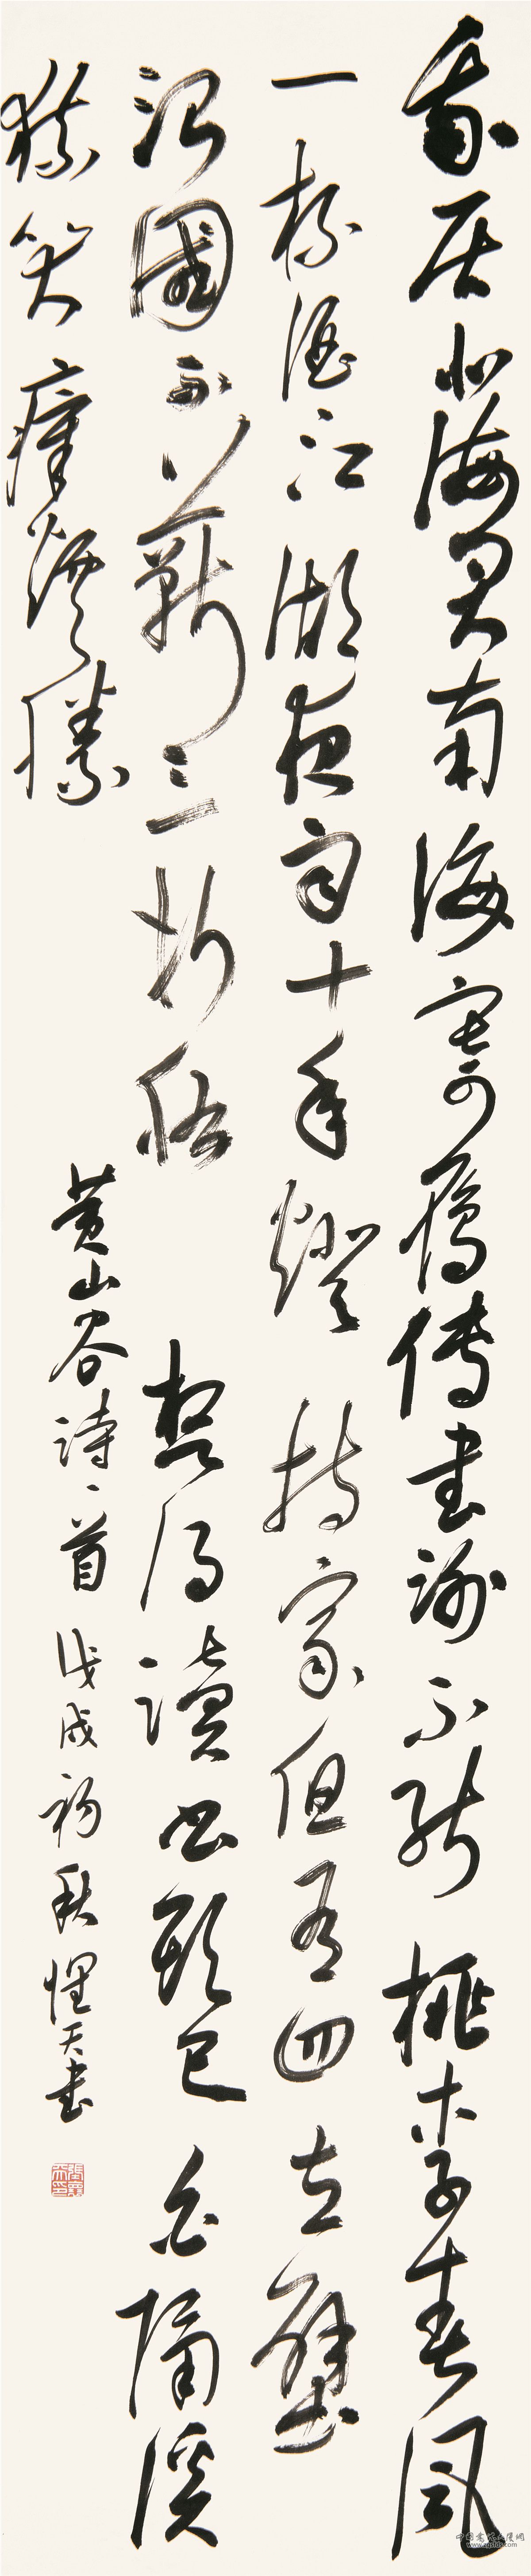 我居北海君南海寄鴈傳書謝不能桃李春風
一杯酒江湖夜雨十年燈持家但有四立壁
治國不蘄三折肱想得讀書頭已白隔溪
猿哭瘴煙藤
黄山谷詩一首戊戌初秋天書